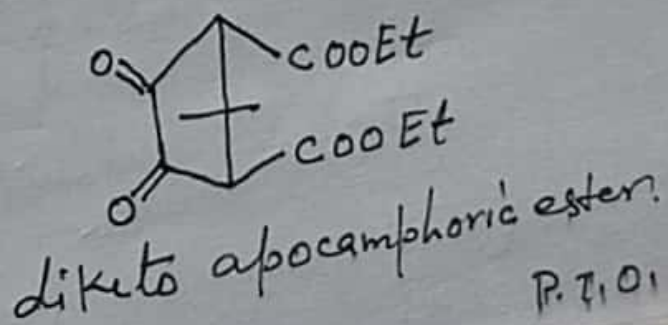 COOEt
O
COOEt
O
diketo apocamphoric ester.
P.T.O.